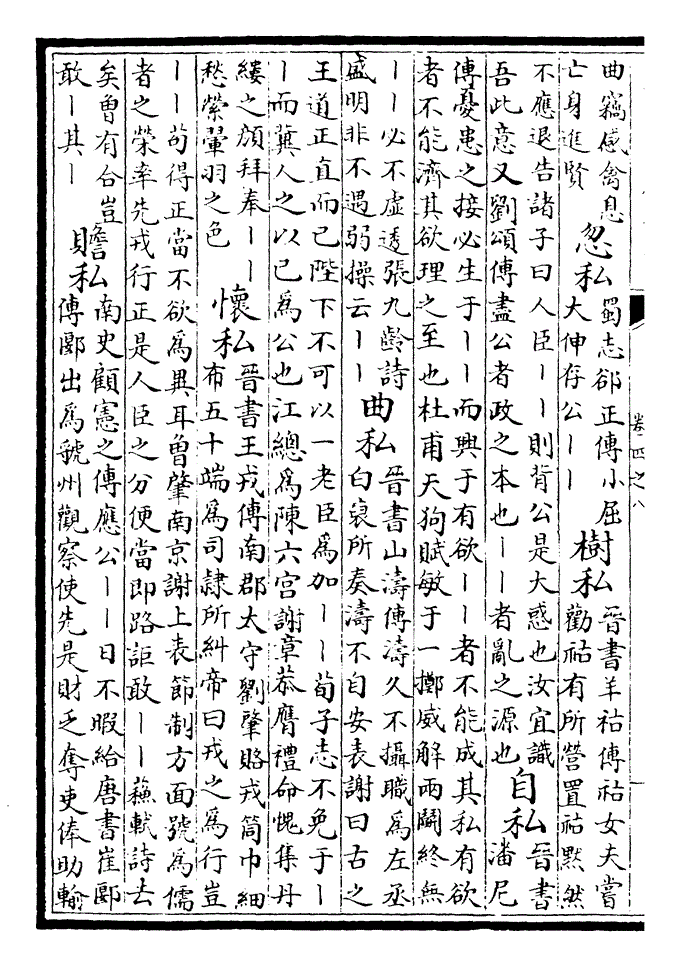 曲竊感禽息
亡身進賢
忽私
蜀志郤正傳小屈
大伸存公丨丨
樹私
晉書羊祜傳祜女夫嘗
勸祜有所營置祜默然
不應退告諸子曰人臣丨丨則背公是大惑也汝宜識
吾此意又劉頌傳盡公者政之本也丨丨者亂之源也
自私
晉書
潘尼
傳憂患之接必生于丨丨而興于有欲丨丨者不能成其私有欲
者不能濟其欲理之至也杜甫天狗賦敏于一擲威解兩鬭終無
丨丨必不虛透張九齡詩
盛明非不遇弱操云丨丨
曲私
晉書山濤傳濤久不攝職爲左丞
白裒所奏濤不自安表謝曰古之
王道正直而已陛下不可以一老臣爲加丨丨荀子志不免于丨
丨而冀人之以已爲公也江總爲陳六宮謝章恭膺禮命愧集丹
縷之顔拜奉丨丨
愁縈翬羽之色
懷私
晉書王戎傳南郡太守劉肇賂戎筒巾細
布五十端爲司隷所糾帝曰戎之爲行豈
丨丨苟得正當不欲爲異耳曾肇南京謝上表節制方面號爲儒
者之榮率先戎行正是人臣之分便當即路詎敢丨丨蘇軾詩去
矣魯有台豈
敢丨其丨
贍私
南史顧憲之傳應公丨丨日不暇給唐書崔郾
傳郾出爲虢州觀察使先是財乏奪吏俸助輸
卷四之八